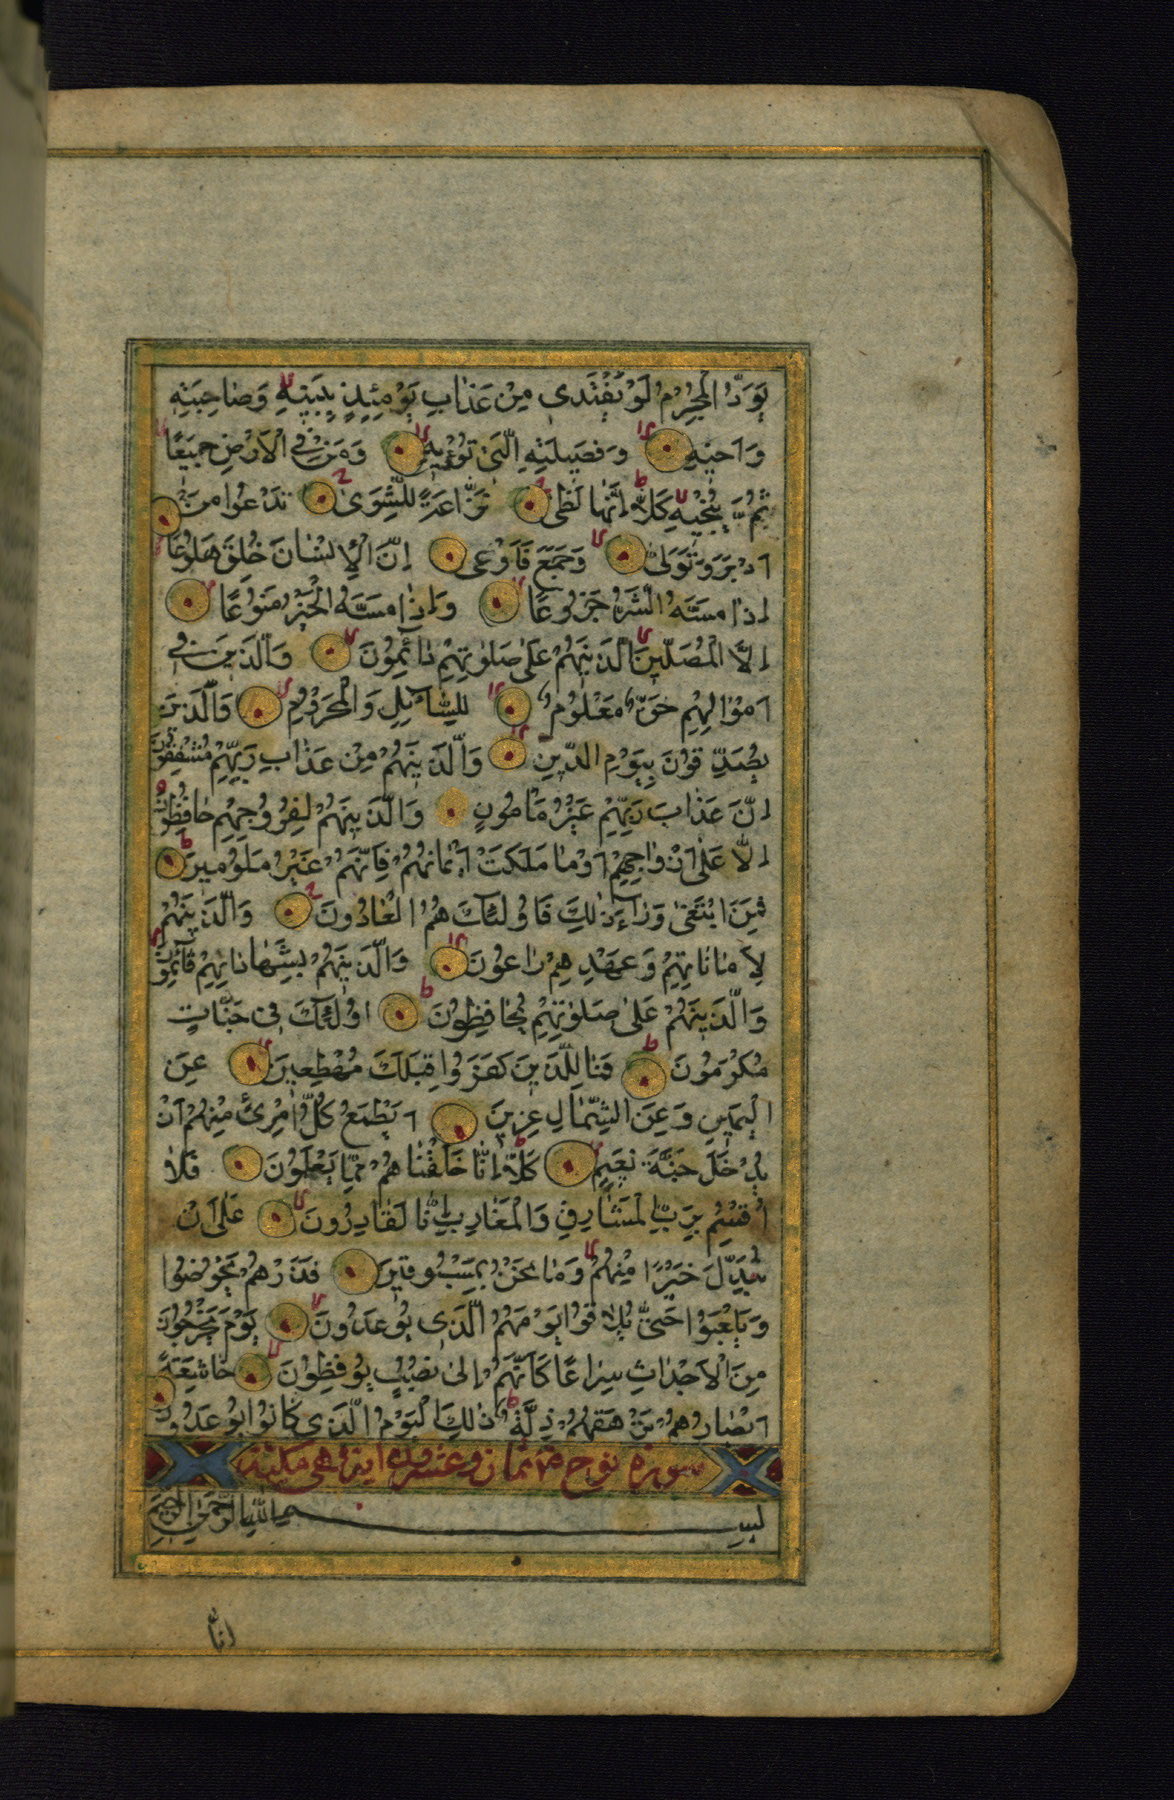 يَوَدُّ الْمُجْرِمُ لَوْ يَفْتَدِى مِنْ عَذَابِ يَوْمِئِذٍ بِبَنِيهِ وَصَاحِبَتِهِ
وَاَخِيهِ وَفَصِيلَتِهِ الَّتِى تُؤْوِيهِ وَمَنْ فِى الْاَرْضِ جَمِيعًا
ثُمَّ يُنْجِيهِ كَلَّا اِنَّهَا لَظٰى نَزَّاعَةً لِلشَّوٰى تَدْعُوا مَنْ
اَدْبَرَ وَتَوَلّٰى وَجَمَعَ فَاَوْعٰى اِنَّ الْاِنْسَانَ خُلِقَ هَلُوعًا
اِذَا مَسَّهُ الشَّرُّ جَزُوعًا وَاِذَا مَسَّهُ الْخَيْرُ مَنُوعًا
اِلَّا الْمُصَلِّينَ الَّذِينَهُمْ عَلٰى صَلٰوتِهِمْ دَائِمُونَ وَالَّذِينَ فِى
اَمْوَالِهِمْ حَقٌّ مَعْلُومٌ لِلسَّآئِلِ وَالْمَحْرُومِ وَالَّذِينَ
يُصَدِّقُونَ بِيَوْمِ الدِّينِ وَالَّذِينَهُمْ مِنْ عَذَابِ رَبِّهِمْ مُشْفِقُونَ
اِنَّ عَذَابَ رَبِّهِمْ غَيْرُ مَاْمُونٍ وَالَّذِينَهُمْ لِفُرُوجِهِمْ حَافِظُونَ
اِلَّا عَلٰى اَزْوَاجِهِمْ اَوْ مَا مَلَكَتْ اَيْمَانُهُمْ فَاِنَّهُمْ غَيْرُ مَلُومِينَ
فَمَنِ ابْتَغٰى وَرَآءَ ذٰلِكَ فَاُولٰئِكَ هُمُ الْعَادُونَ وَالَّذِينَهُمْ
لِاَمَانَاتِهِمْ وَعَهْدِهِمْ رَاعُونَ وَالَّذِينَهُمْ بِشَهَادَاتِهِمْ قَآئِمُونَ
وَالَّذِينَهُمْ عَلٰى صَلٰوتِهِمْ يُحَافِظُونَ اُولٰئِكَ فِى جَنَّاتٍ
مُكْرَمُونَ فَمَا لِلَّذِينَ كَفَرُوا قِبَلَكَ مُهْطِعِينَ عَنِ
الْيَمِينِ وَعَنِ الشِّمَالِ عِزِينَ اَيَطْمَعُ كُلُّ امْرِئٍ مِنْهُمْ اَنْ
يُدْخَلَ جَنَّةَ نَعِيمٍ كَلَّا اِنَّا خَلَقْنَاهُمْ مِمَّا يَعْلَمُونَ فَلَا
اُقْسِمُ بِرَبِّ الْمَشَارِقِ وَالْمَغَارِبِ اِنَّا لَقَادِرُونَ عَلٰى اَنْ
نُبَدِّلَ خَيْرًا مِنْهُمْ وَمَا نَحْنُ بِمَسْبُوقِينَ فَذَرْهُمْ يَخُوضُوا
وَيَلْعَبُوا حَتّٰى يُلَاقُوا يَوْمَهُمُ الَّذِى يُوعَدُونَ يَوْمَ يَخْرُجُونَ
مِنَ الْاَجْدَاثِ سِرَاعًا كَاَنَّهُمْ اِلٰى نُصُبٍ يُوفِضُونَ خَاشِعَةً
اَبْصَارُهُمْ تَرْهَقُهُمْ ذِلَّةٌ ذٰلِكَ الْيَوْمُ الَّذِى كَانُوا يُوعَدُونَ
سورة نوح ثمان وعشرون اية وهى مكية
بِسْمِ اللهِ الرَّحْمٰنِ الرَّحِيمِ
انّا